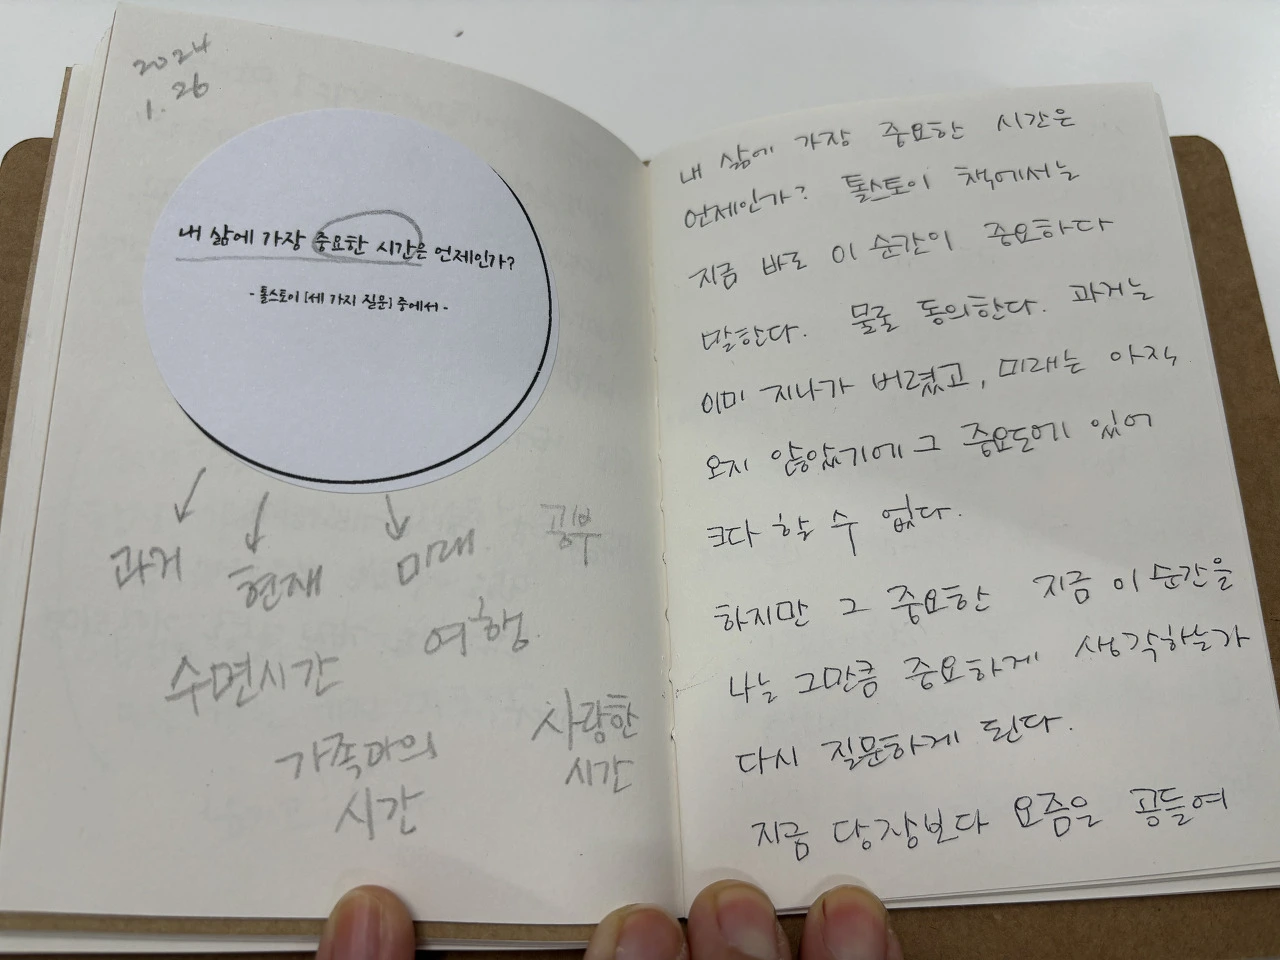 2024
1.26
내 삶에 가장 중요한 시간은 언제인가?
- 톨스토이 [세 가지 질문] 중에서 -
과거
현재
미래
공부
여행
수면시간
가족과의
시간
사랑한
시간
내 삶에 가장 중요한 시간은
언제인가? 톨스토이 책에서는
지금 바로 이 순간이 중요하다
말한다. 물론 동의한다. 과거는
이미 지나가 버렸고, 미래는 아직
오지 않았기에 그 중요도에 있어
크다 할 수 없다.
하지만 그 중요한 지금 이 순간을
나는 그만큼 중요하게 생각하는가
다시 질문하게 된다.
지금 당장보다 요즘은 공들여